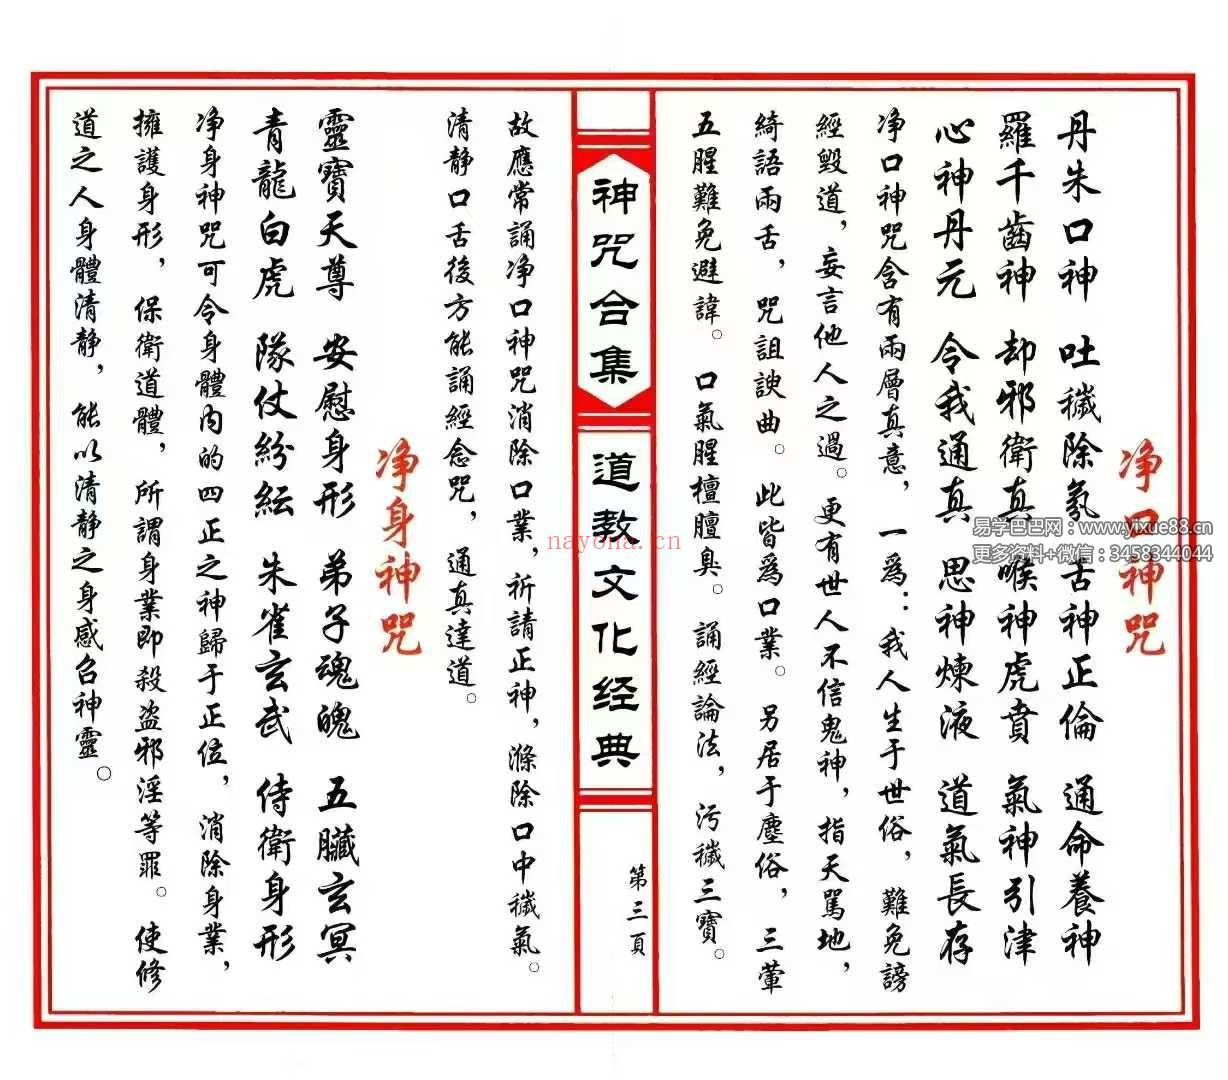 净口神咒
丹朱口神　吐穢除氛　舌神正倫　通命養神
羅千齒神　却邪衛真　喉神虎賁　氣神引津
心神丹元　令我通真　思神煉液　道氣長存
净口神咒含有兩層真意，一爲：我人生于世俗，難免謗
經毀道，妄言他人之過。更有世人不信鬼神，指天罵地，
綺語兩舌，咒詛諛曲。此皆爲口業。另居于塵俗，三葷
五腥難免避諱。口氣腥檀膻臭。誦經論法，污穢三寶。
神咒合集
道教文化经典
第三頁
故應常誦净口神咒消除口業，祈請正神，滌除口中穢氣。
清静口舌後方能誦經念咒，通真達道。
净身神咒
靈寶天尊　安慰身形　弟子魂魄　五臟玄冥
青龍白虎　隊仗紛紜　朱雀玄武　侍衛身形
净身神咒可令身體内的四正之神歸于正位，消除身業，
擁護身形，保衛道體，所謂身業即殺盗邪淫等罪。使修
道之人身體清静，能以清静之身感召神靈。
易学巴巴网：www.yixue88.cn
更多资料+微信：3458344044
nayona.cn